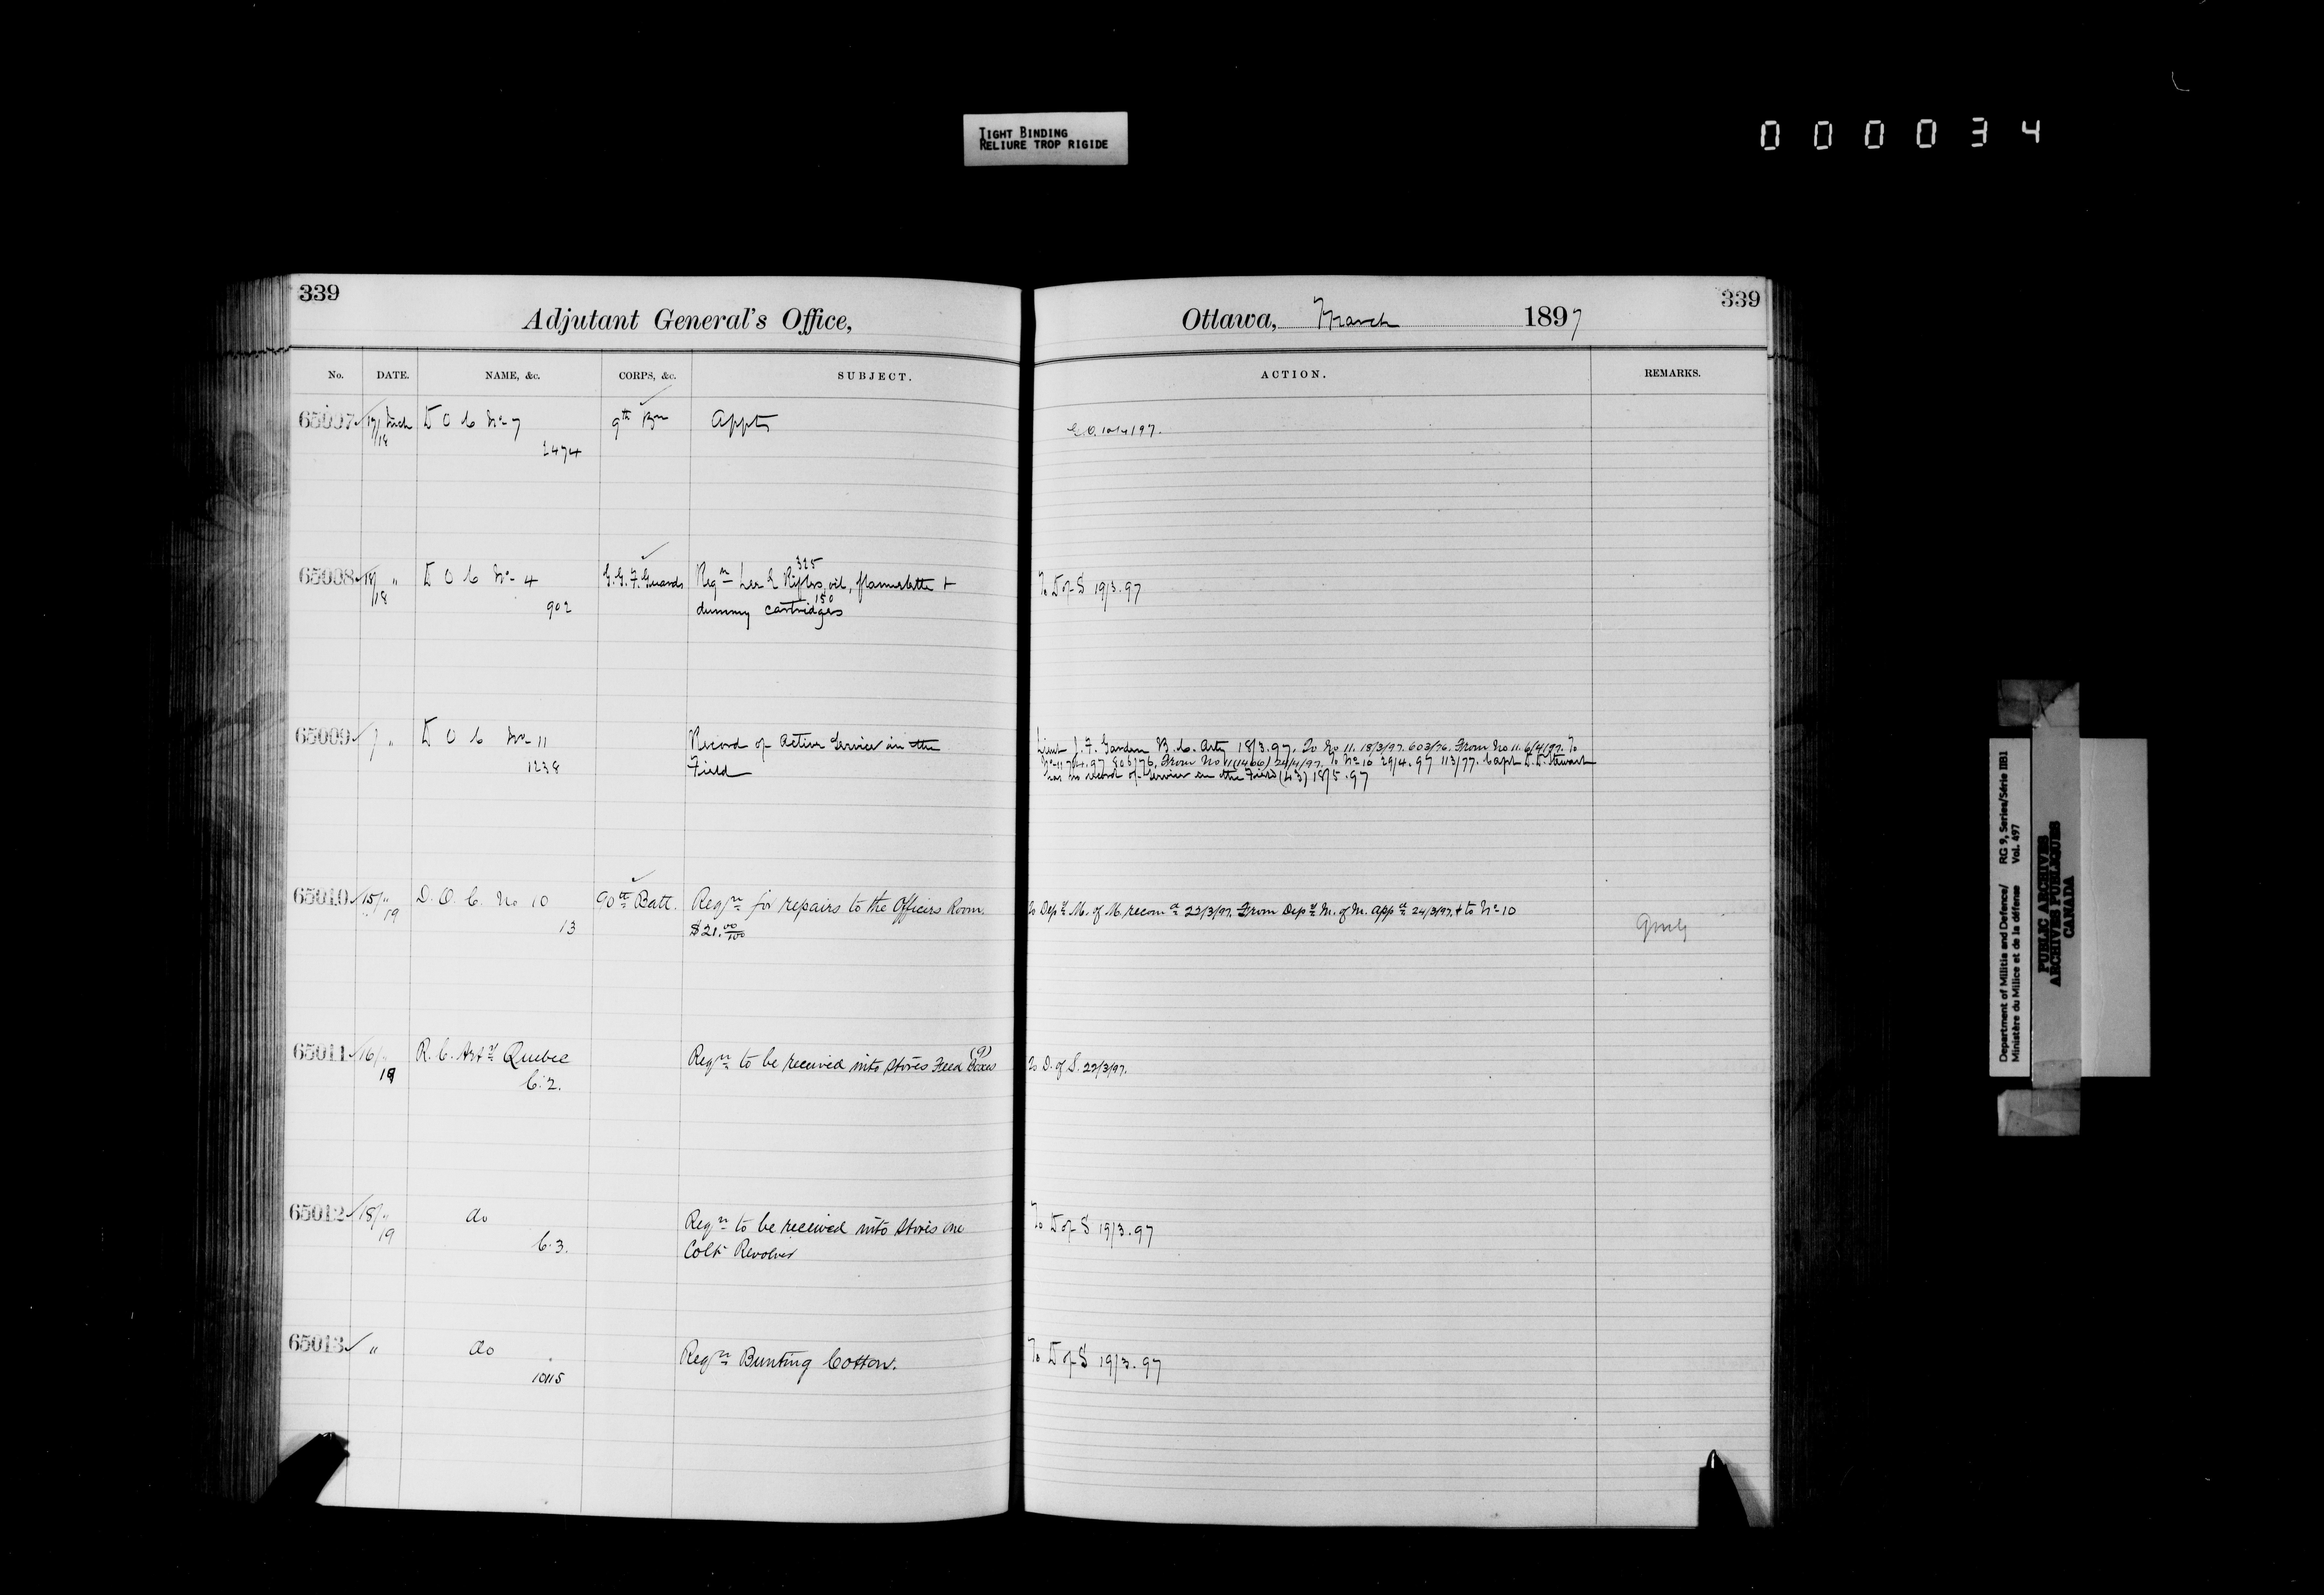 TIGHT BINDING
RELIURE TROP RIGIDE
000034
339
Adjutant General's Office,
Ottawa, March 1897
339
No. DATE. NAME, &c. CORPS, &c. SUBJECT. ACTION. REMARKS.
65007 17/ Mch D O C No 7 9th Bn Appts G.O. 97.
18 2474
65008 18/ " D O C No 4 G.G.F. Guards Reqn Lee E Rifles, 325 oil, flannelette + To D of S 19/3.97
18 902 dummy cartridges 150
65009 " D O C No 11 Record of Active Service in the Field
1238
Lieut J. F. Garden B.C. Arty 18/3.97. To No 11. 18/3/97. 603/76. From No 11. 6/4/97. To
No 11 7/4.97 806/76. From No 11 (1466) 29/4/97. To No 10 29/4.97 113/77. Capt D.D. Stewart
has no record of service in the Field (43) 18/5.97
65010 15/ " D. O. C. No 10 90th Batt. Reqn for repairs to the Officers Room. To Depy M. of M. recomd 22/3/97. From Depy M. of M. appd 24/3/97. + to No 10
19 13 $21.00/100
65011 16/ " R. C. Arty Quebec Reqn to be received into Stores Feed Boxes (9) To D. of S. 22/3/97.
19 C.2.
65012 18/ " do Reqn to be received into Stores one To D of S 19/3.97
19 C.3. Colt Revolver
65013 " do Reqn Bunting Cotton. To D of S 19/3.97
10115
Department of Militia and Defence/ RG 9, Series/Série IIB1
Ministère du Milice et de la défense Vol. 497
PUBLIC ARCHIVES
ARCHIVES PUBLIQUES
CANADA